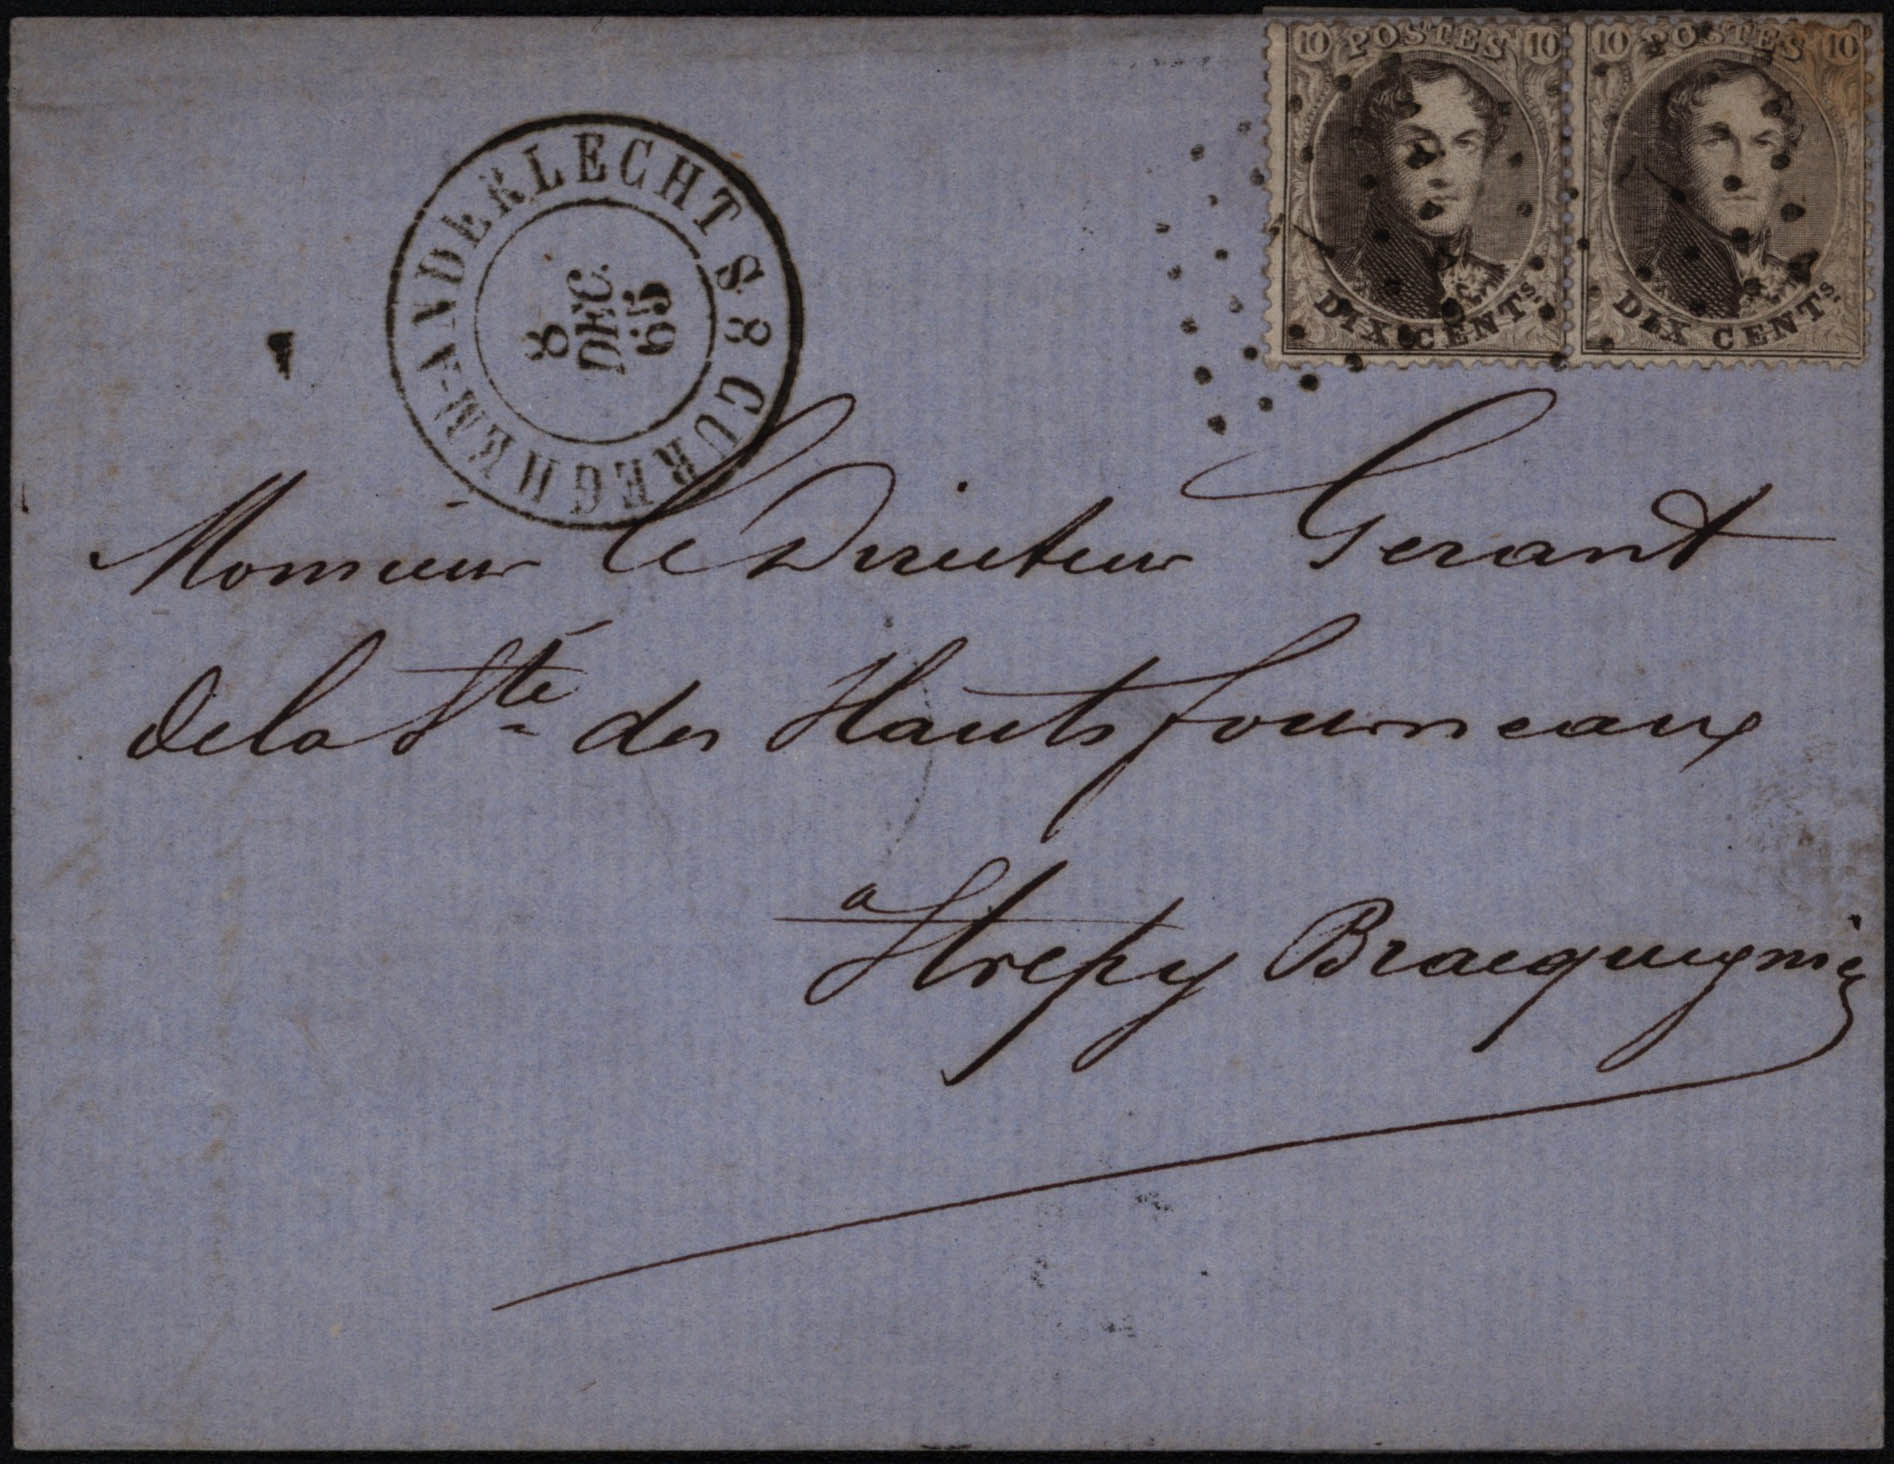 10 POSTES 10
DIX CENTs.
10 POSTES 10
DIX CENTs.
CUREGHEM-ANDERLECHT S8
8
DEC.
65
Monsieur le Directeur Gerant
de la Sté des Hauts fourneaux
a Strepy Bracquegnies